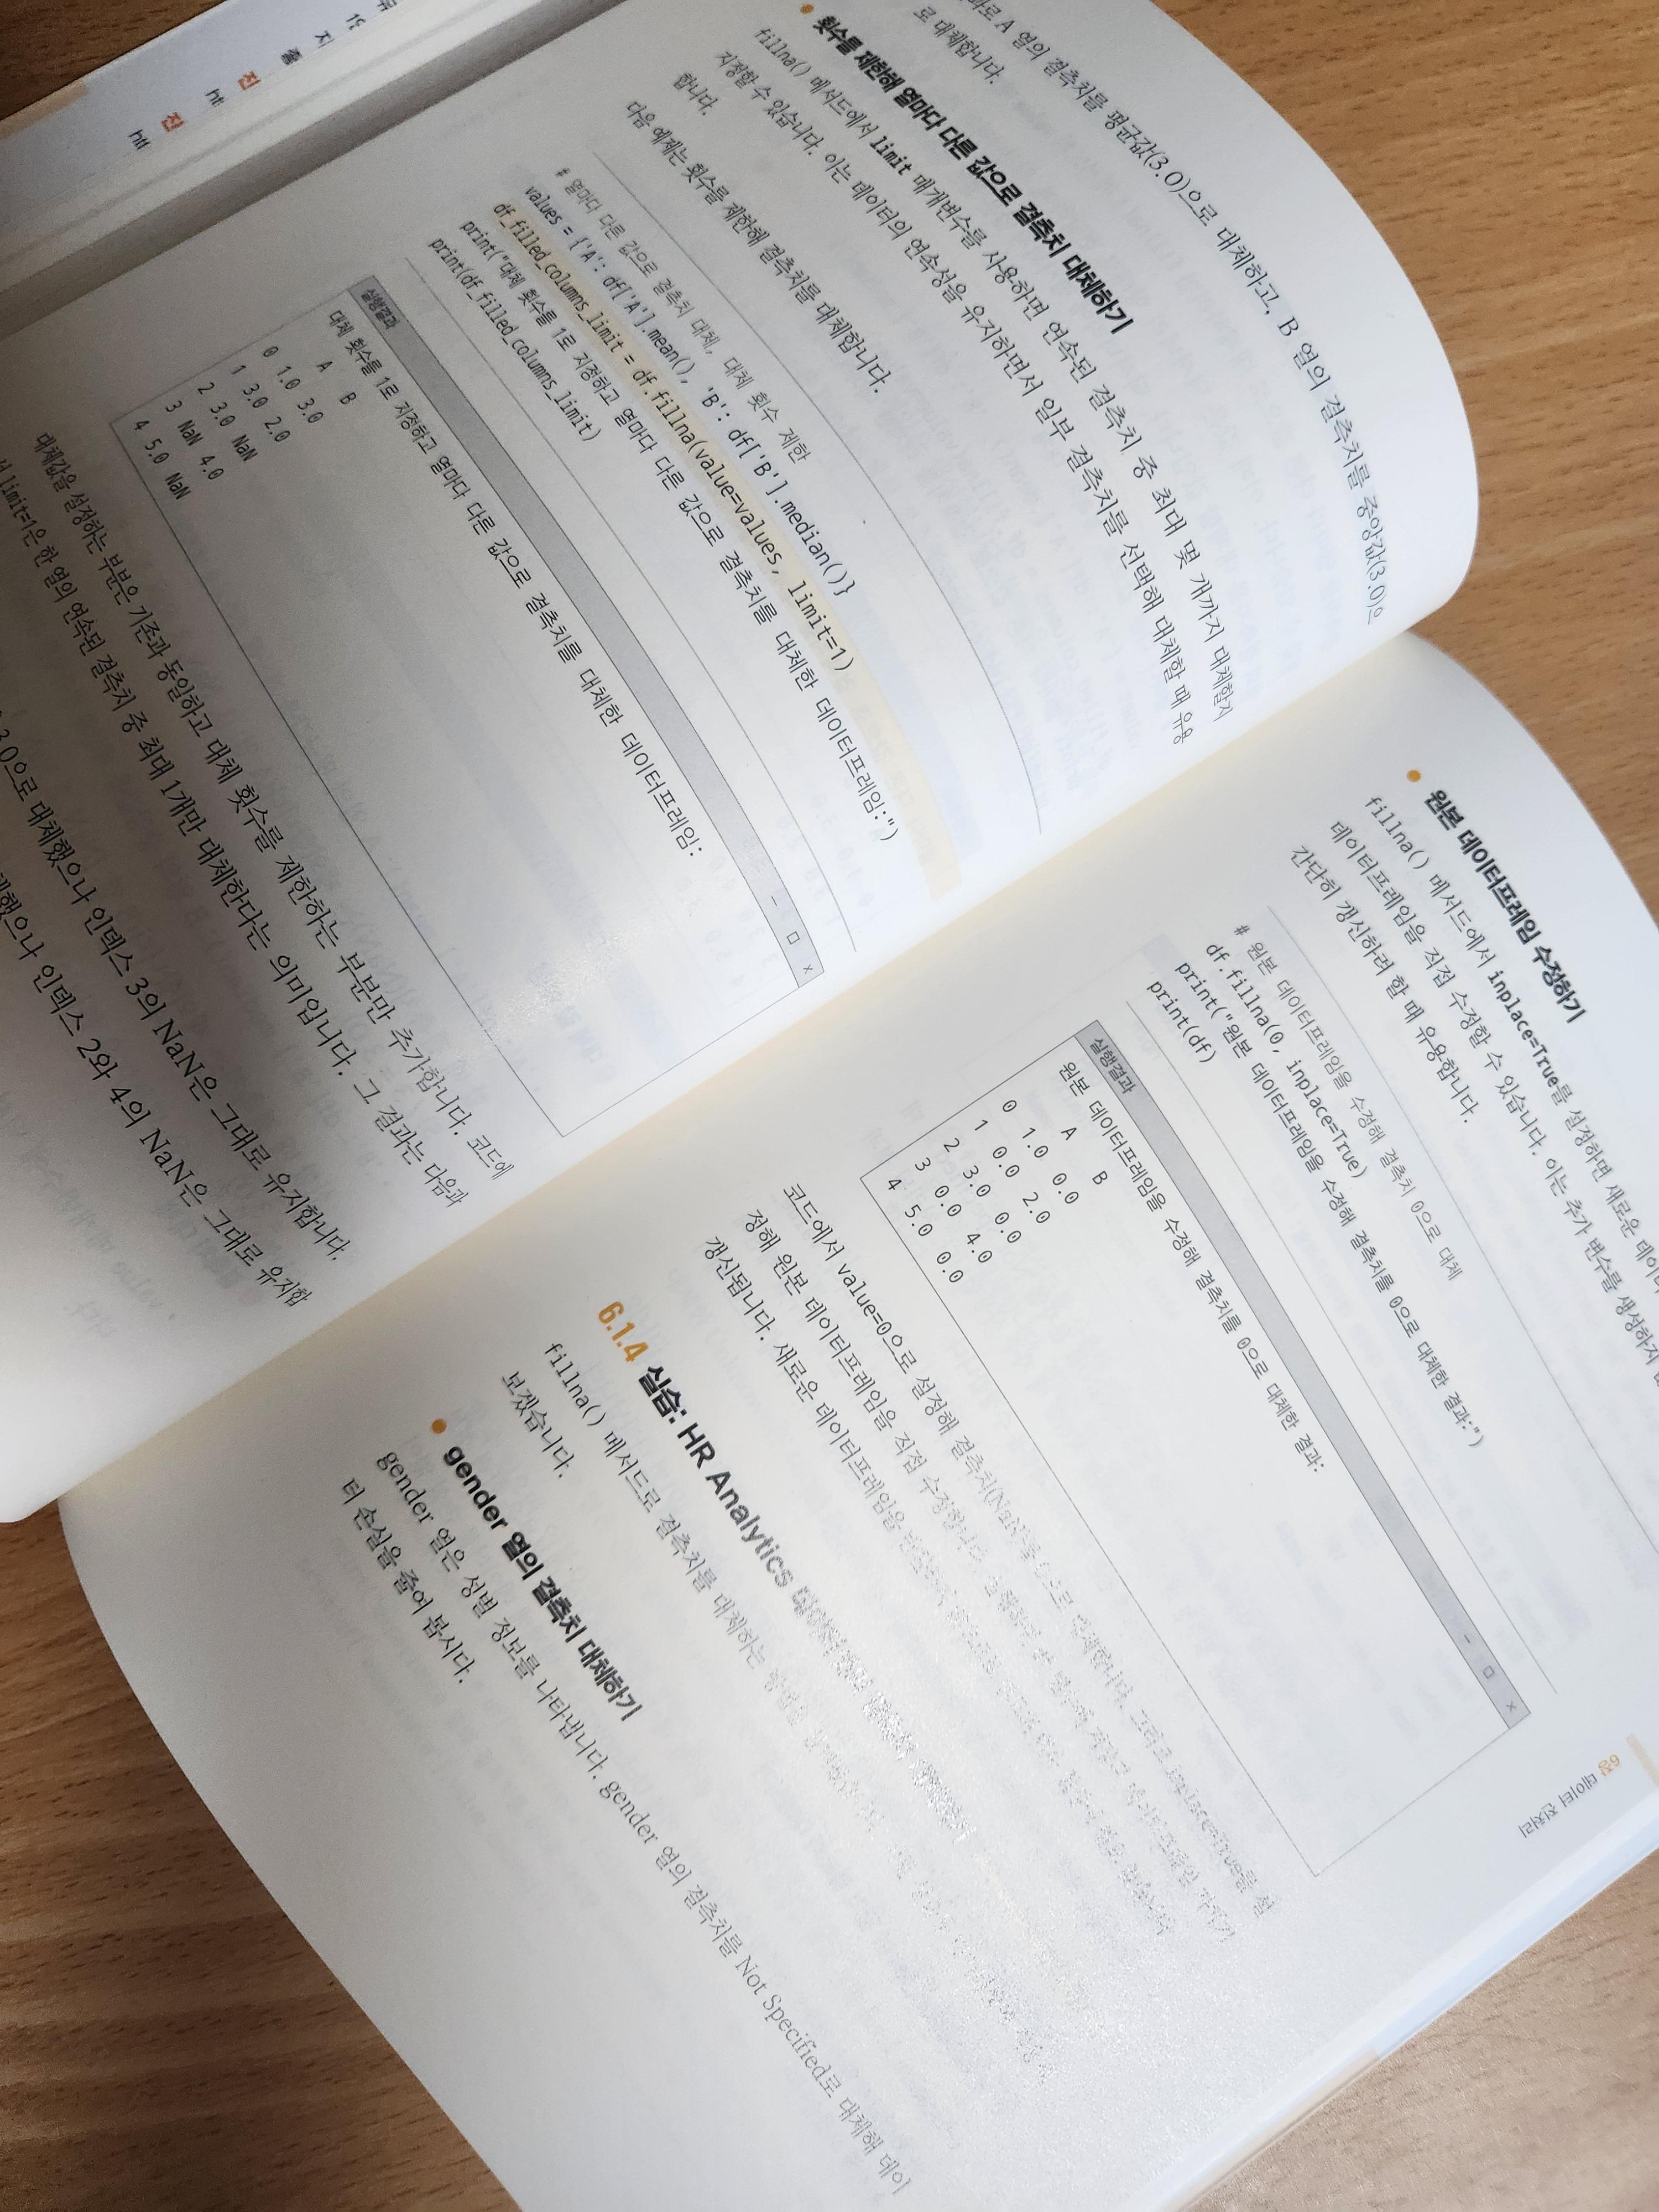 로 A 열의 결측치를 평균값(3.0)으로 대체하고, B 열의 결측치를 중앙값(3.0)으
로 대체합니다.
횟수를 제한해 열마다 다른 값으로 결측치 대체하기
fillna() 메서드에서 limit 매개변수를 사용하면 연속된 결측치 중 최대 몇 개까지 대체할지
지정할 수 있습니다. 이는 데이터의 연속성을 유지하면서 일부 결측치를 선택해 대체할 때 유용
합니다.
다음 예제는 횟수를 제한해 결측치를 대체합니다.
# 열마다 다른 값으로 결측치 대체, 대체 횟수 제한
values = {'A': df['A'].mean(), 'B': df['B'].median()}
df_filled_columns_limit = df.fillna(value=values, limit=1)
print("대체 횟수를 1로 지정하고 열마다 다른 값으로 결측치를 대체한 데이터프레임:")
print(df_filled_columns_limit)
실행결과
대체 횟수를 1로 지정하고 열마다 다른 값으로 결측치를 대체한 데이터프레임:
A B
0 1.0 3.0
1 3.0 2.0
2 3.0 NaN
3 NaN 4.0
4 5.0 NaN
대체값을 설정하는 부분은 기존과 동일하고 대체 횟수를 제한하는 부분만 추가합니다. 코드에
limit=1은 한 열의 연속된 결측치 중 최대 1개만 대체한다는 의미입니다. 그 결과는 다음과
3.0으로 대체했으나 인덱스 3의 NaN은 그대로 유지합니다.
했으나 인덱스 2와 4의 NaN은 그대로 유지합
원본 데이터프레임 수정하기
fillna() 메서드에서 inplace=True를 설정하면 새로운
데이터프레임을 직접 수정할 수 있습니다. 이는 추가 변수를 생성하지
간단히 갱신하려 할 때 유용합니다.
# 원본 데이터프레임을 수정해 결측치 0으로 대체
df.fillna(0, inplace=True)
print("원본 데이터프레임을 수정해 결측치를 0으로 대체한 결과:")
print(df)
실행결과
원본 데이터프레임을 수정해 결측치를 0으로 대체한 결과:
A B
0 1.0 0.0
1 0.0 2.0
2 3.0 0.0
3 0.0 4.0
4 5.0 0.0
코드에서 value=0으로 설정해 결측치(NaN)를 0으로 대체합니다. 그리고 inplace=True를 설
정해 원본 데이터프레임을 직접 수정합니다.
갱신됩니다. 새로운 데이터프레임을
6.1.4 실습: HR Analytics
fillna() 메서드로 결측치를 대체하는 방법을
보겠습니다.
gender 열의 결측치 대체하기
gender 열은 성별 정보를 나타냅니다. gender 열의 결측치를 Not Specified로 대체해 데이
터 손실을 줄여 봅시다.
6장 데이터 전처리